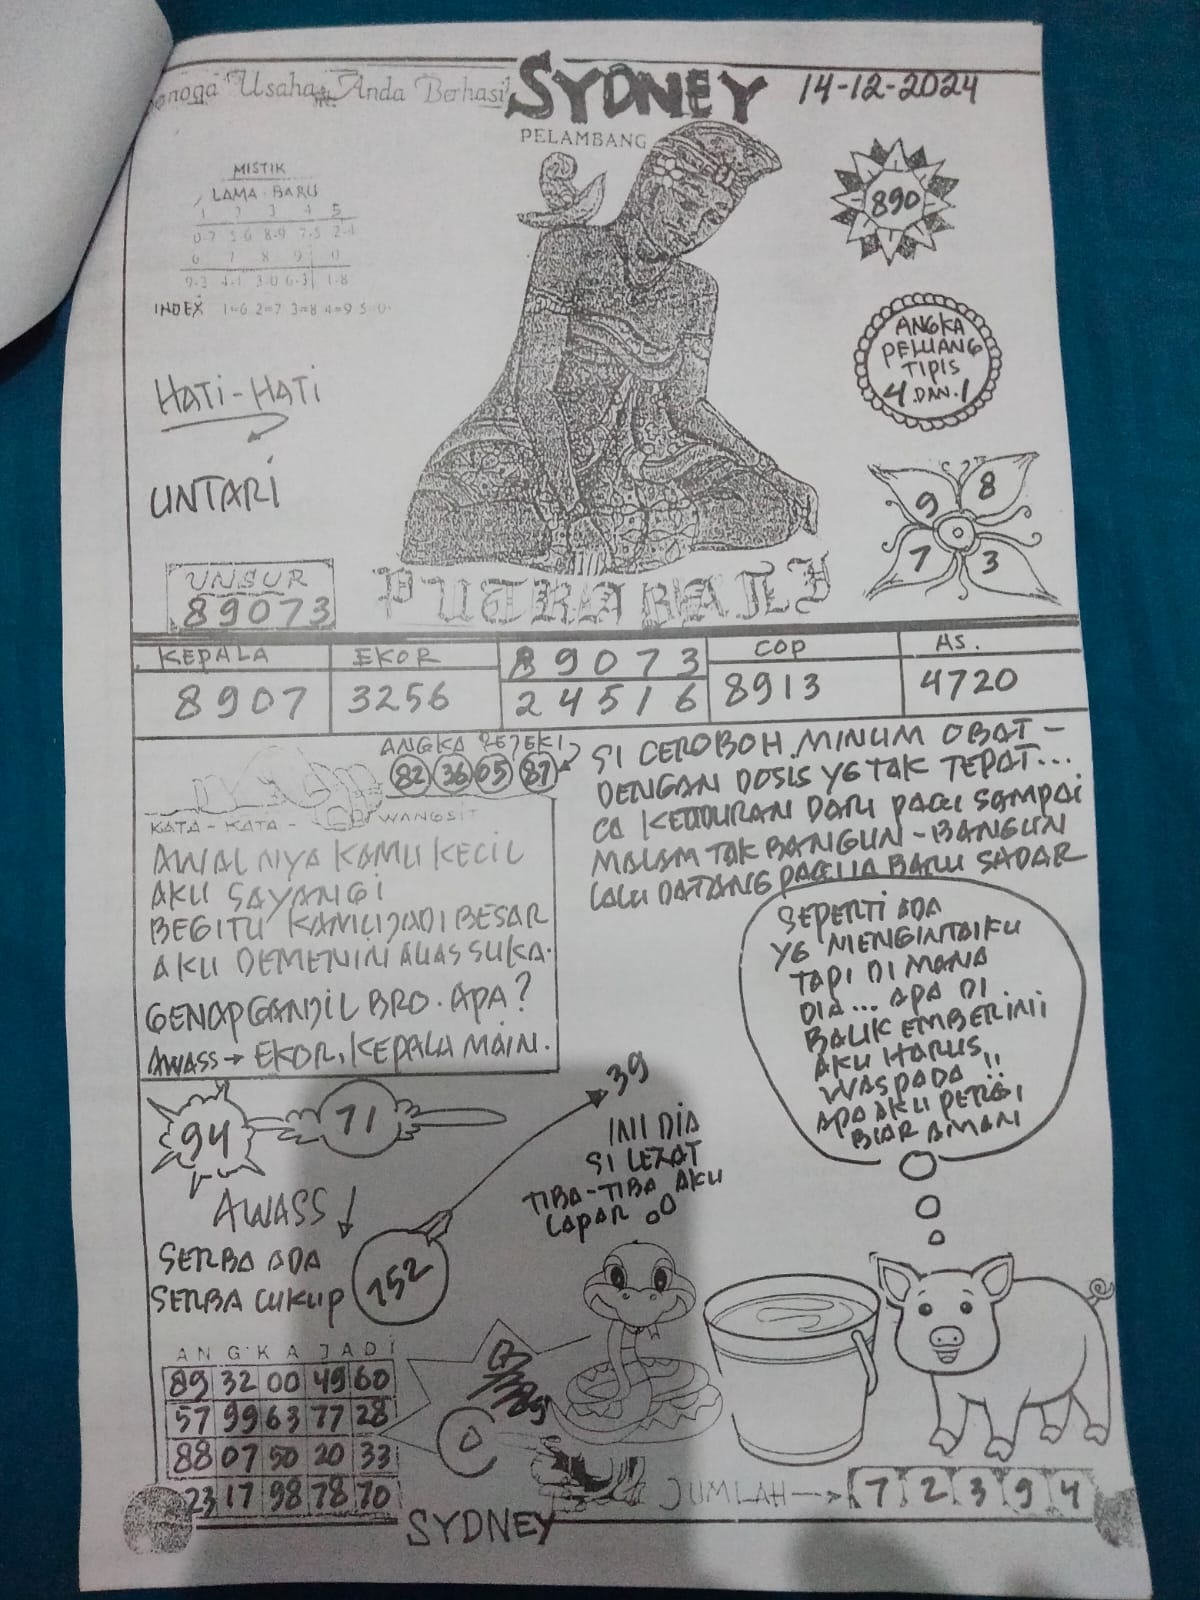 Usaha Anda Berhasil
SYDNEY
14-12-2024
PELAMBANG
MISTIK
LAMA - BARU
1 2 3 4 5
0-7 5-6 8-9 7-5 2-1
6 7 8 9 0
9-3 4-1 3-0 6-3 1-8
INDEX 1=6 2=7 3=8 4=9 5=0
890
ANGKA
PELUANG
TIPIS
4 DAN 1
HATI-HATI
UNTARI
9 8
7 3
UNSUR
89073
PUTRA BALI
KEPALA
8907
EKOR
3256
89073
24516
COP
8913
AS.
4720
ANGKA REJEKI
82 36 05 87
KATA - KATA - WANGSIT
AWAL NYA KAMU KECIL
AKU SAYANGI
BEGITU KAMU JADI BESAR
AKU
GENAP GANJIL BRO. APA?
AWASS → EKOR, KEPALA MAIN.
SI CEROBOH MINUM OBAT -
DENGAN DOSIS YG TAK TEPAT...
DARI PAGI SAMPAI
MALAM TAK BANGUN-BANGUN
LALU DATANG BARU SADAR
SEPERTI ADA
YG MENGINTAIKU
TAPI DI MANA
DIA... APA DI
BALIK EMBER INI
AKU HARUS
WASPADA!!
APA AKU PERGI
BIAR AMAN
94
71
39
INI DIA
SI LEZAT
TIBA-TIBA AKU
LAPAR
AWASS ↓
SERBA ADA
SERBA CUKUP
752
ANGKA JADI
89 32 00 49 60
57 99 63 77 28
88 07 50 20 33
23 17 98 78 70
0
JUMLAH → 7 2 3 9 4
SYDNEY